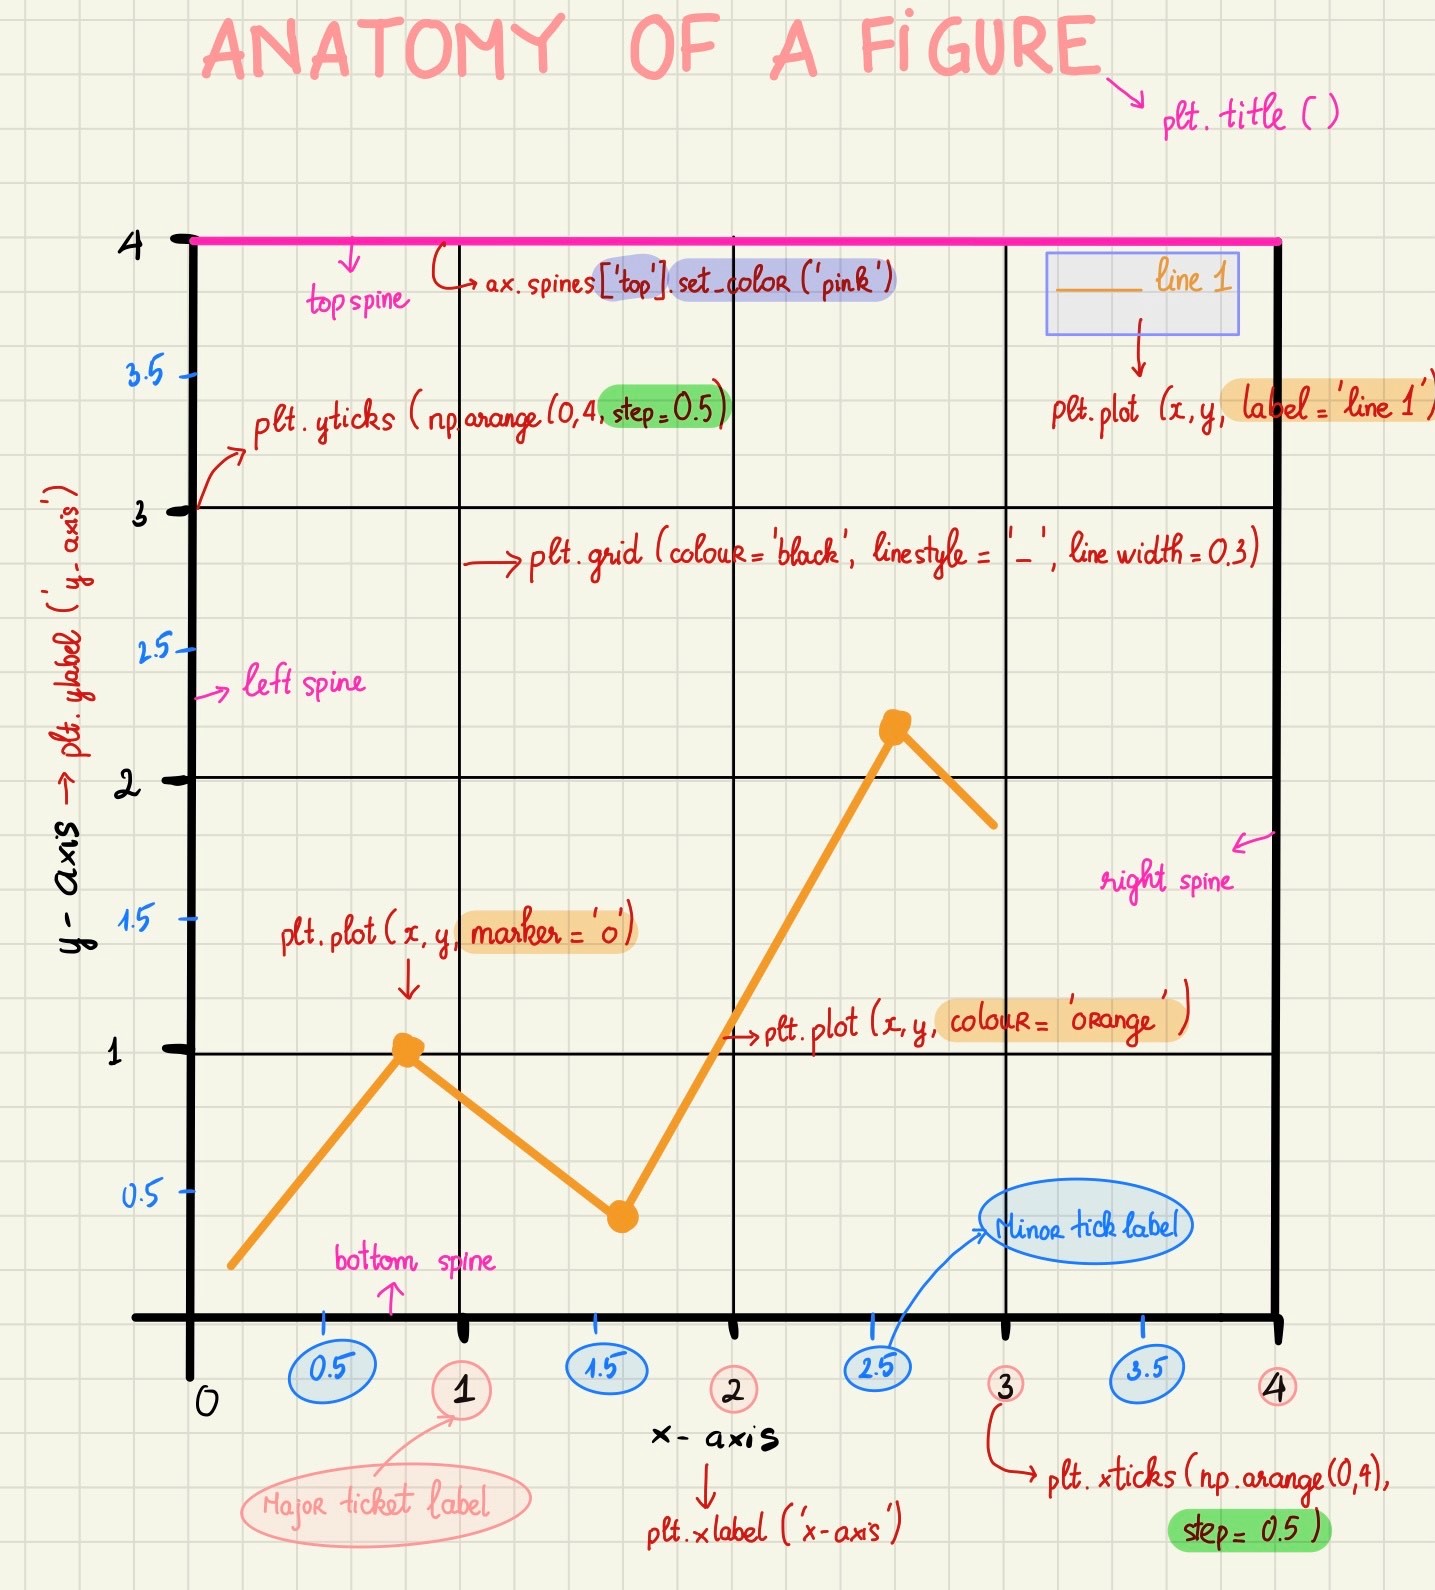 ANATOMY OF A FiGURE
plt. title ( )
4
top spine
ax. spines ['top']. set_color ('pink')
line 1
3.5
plt. yticks ( np.arange (0,4, step = 0.5)
plt.plot (x, y, label = 'line 1')
3
plt.grid (colour = 'black', linestyle = '_', line width = 0.3)
2.5
left spine
y - axis → plt. ylabel ('y-axis')
2
right spine
1.5
plt.plot (x, y, marker = 'o')
plt.plot (x, y, colour = 'orange')
1
0.5
Minor tick label
bottom spine
0 0.5 1 1.5 2 2.5 3 3.5 4
x - axis
Major ticket label
plt. xlabel ('x-axis')
plt. xticks (np.arange (0,4),
step = 0.5 )